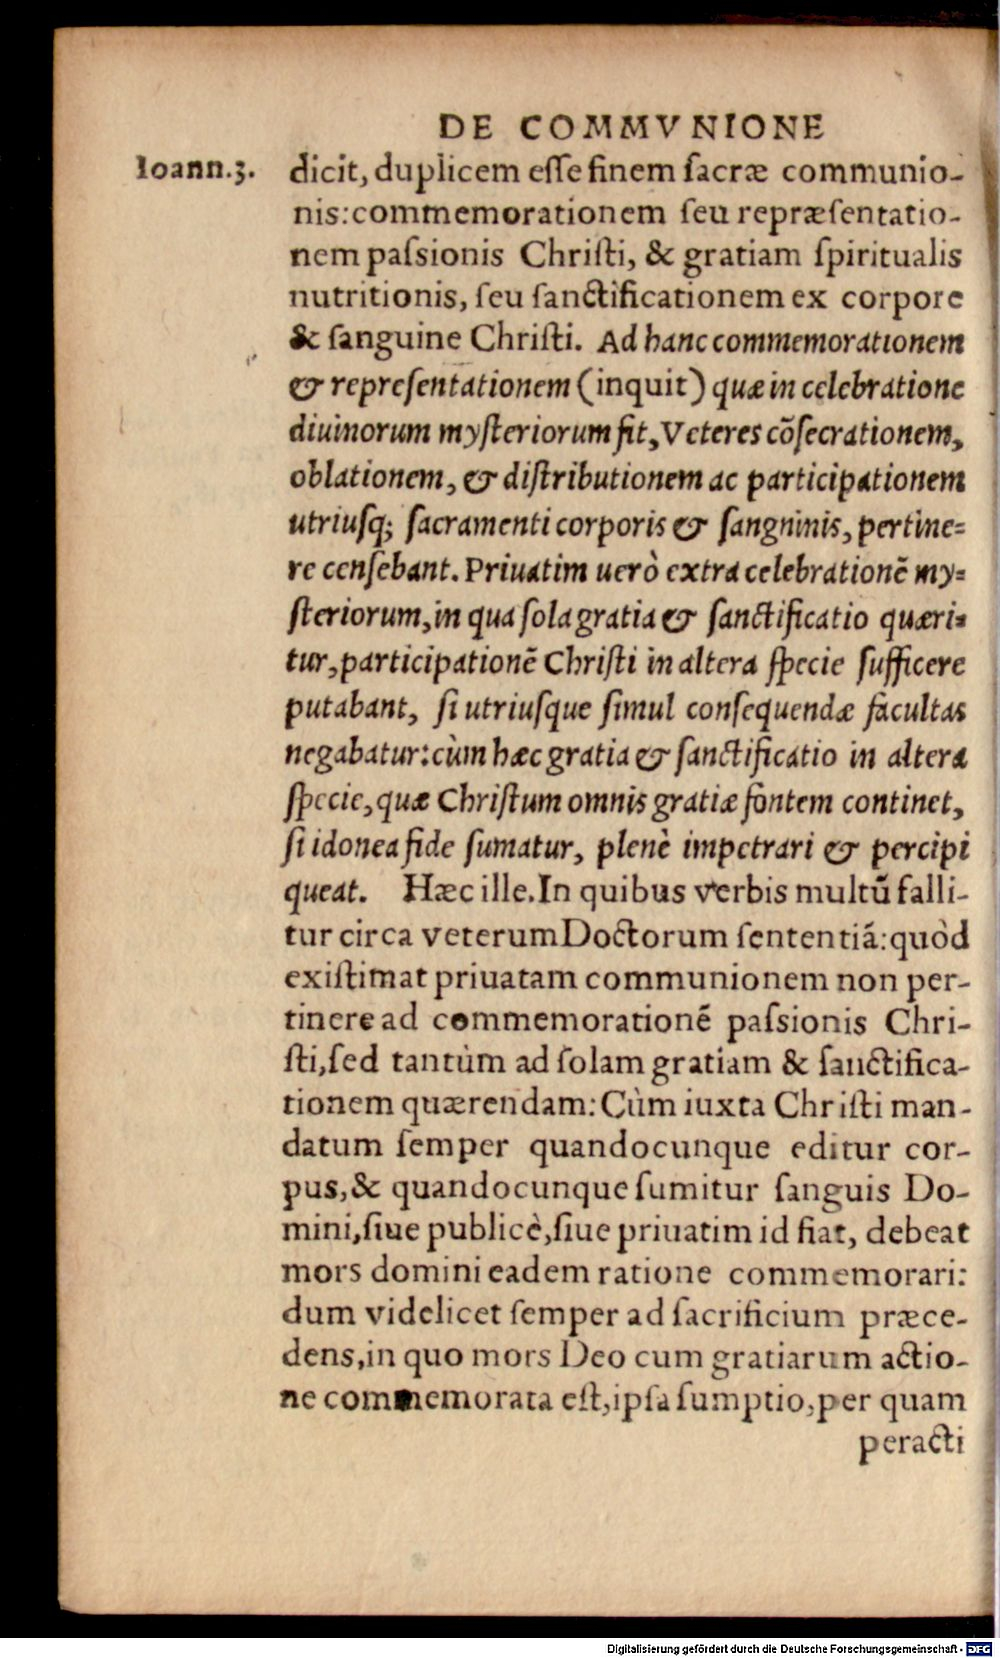 DE COMMVNIONE
Ioann.3.
dicit, duplicem esse finem sacræ communio-
nis: commemorationem seu repræsentatio-
nem passionis Christi, & gratiam spiritualis
nutritionis, seu sanctificationem ex corpore
& sanguine Christi. Ad hanc commemorationem
& repręsentationem (inquit) quæ in celebratione
diuinorum mysteriorum fit, Veteres cõsecrationem,
oblationem, & distributionem ac participationem
utriusq; sacramenti corporis & sangninis, pertine=
re censebant. Priuatim uerò extra celebrationẽ my=
steriorum, in qua sola gratia & sanctificatio quæri=
tur, participationẽ Christi in altera specie sufficere
putabant, si utriusque simul consequendæ facultas
negabatur: cùm hæc gratia & sanctificatio in altera
specie, quæ Christum omnis gratiæ fontem continet,
si idonea fide sumatur, plenè impetrari & percipi
queat. Hæc ille. In quibus verbis multũ falli-
tur circa veterum Doctorum sententiã: quòd
existimat priuatam communionem non per-
tinere ad commemorationẽ passionis Chri-
sti, sed tantùm ad solam gratiam & sanctifica-
tionem quærendam: Cùm iuxta Christi man-
datum semper quandocunque editur cor-
pus, & quandocunque sumitur sanguis Do-
mini, siue publicè, siue priuatim id fiat, debeat
mors domini eadem ratione commemorari:
dum videlicet semper ad sacrificium præce-
dens, in quo mors Deo cum gratiarum actio-
ne commemorata est, ipsa sumptio, per quam
peracti
Digitalisierung gefördert durch die Deutsche Forschungsgemeinschaft - DFG